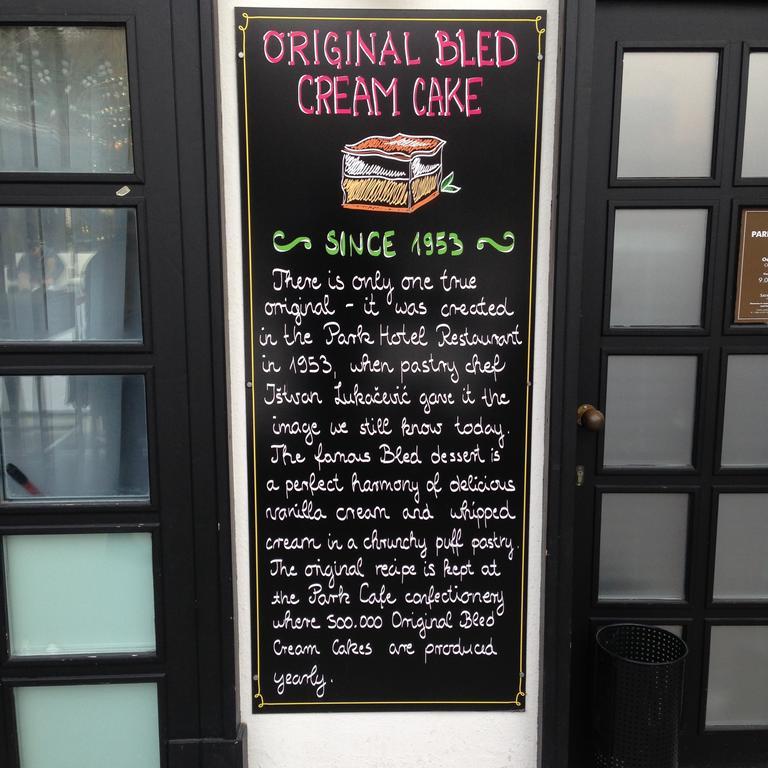 ORIGINAL BLED
CREAM CAKE
SINCE 1953
There is only one true
original - it was created
in the Park Hotel Restaurant
in 1953, when pastry chef
Ištvan Lukačević gave it the
image we still know today.
The famous Bled dessert is
a perfect harmony of delicious
vanilla cream and whipped
cream in a chrunchy puff pastry.
The original recipe is kept at
the Park Cafe confectionery
where 500.000 Original Bled
Cream Cakes are produced
yearly.